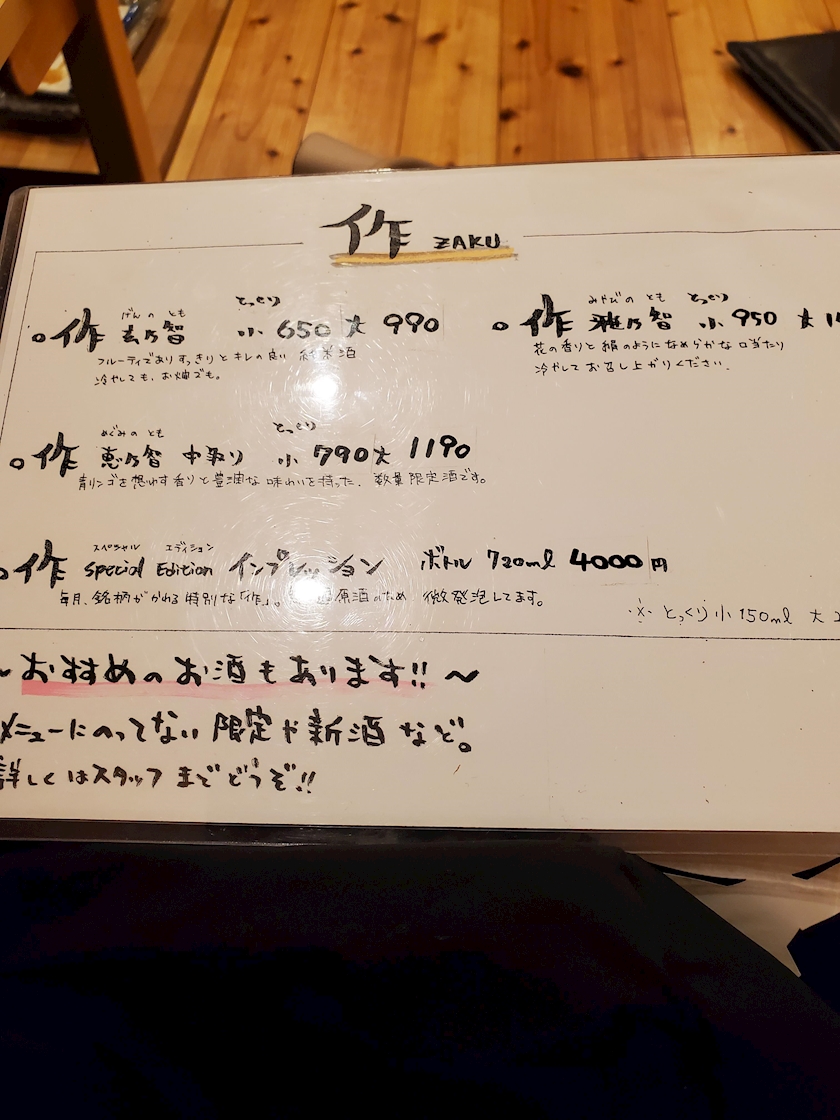 作 ZAKU
げんのとも とっくり
作 玄乃智 小 650 大 990
フルーティでありすっきりとキレの良い 純米酒
冷やしても、お燗でも。
みやびのとも とっくり
作 雅乃智 小 950 大
花の香りと絹のようになめらかな口当たり
冷やしてお召し上がりください。
めぐみのとも とっくり
作 恵乃智 中取り 小 790 大 1190
青リンゴを想わす香りと豊潤な味わいを持った、数量限定酒です。
スペシャル エディション
作 Special Edition インプレッション ボトル 720ml 4000円
毎月、銘柄がかわる特別な「作」。 原酒のため 微発泡してます。
※ とっくり小 150ml 大
〜おすすめのお酒もあります!!〜
メニューにのってない 限定や新酒など。
詳しくはスタッフまでどうぞ!!